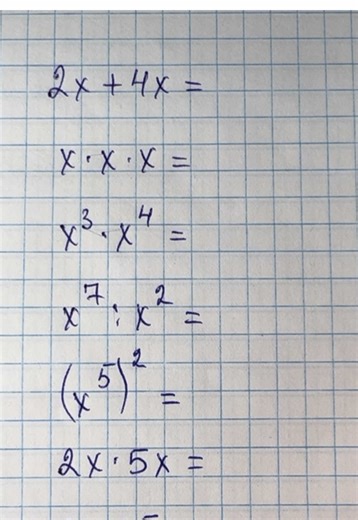 2x + 4x =
x · x · x =
x³ · x⁴ =
x⁷ : x² =
(x⁵)² =
2x · 5x =